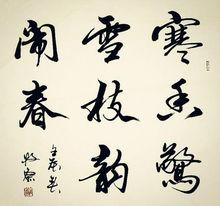 寒香驚
雪枝韵
闹春